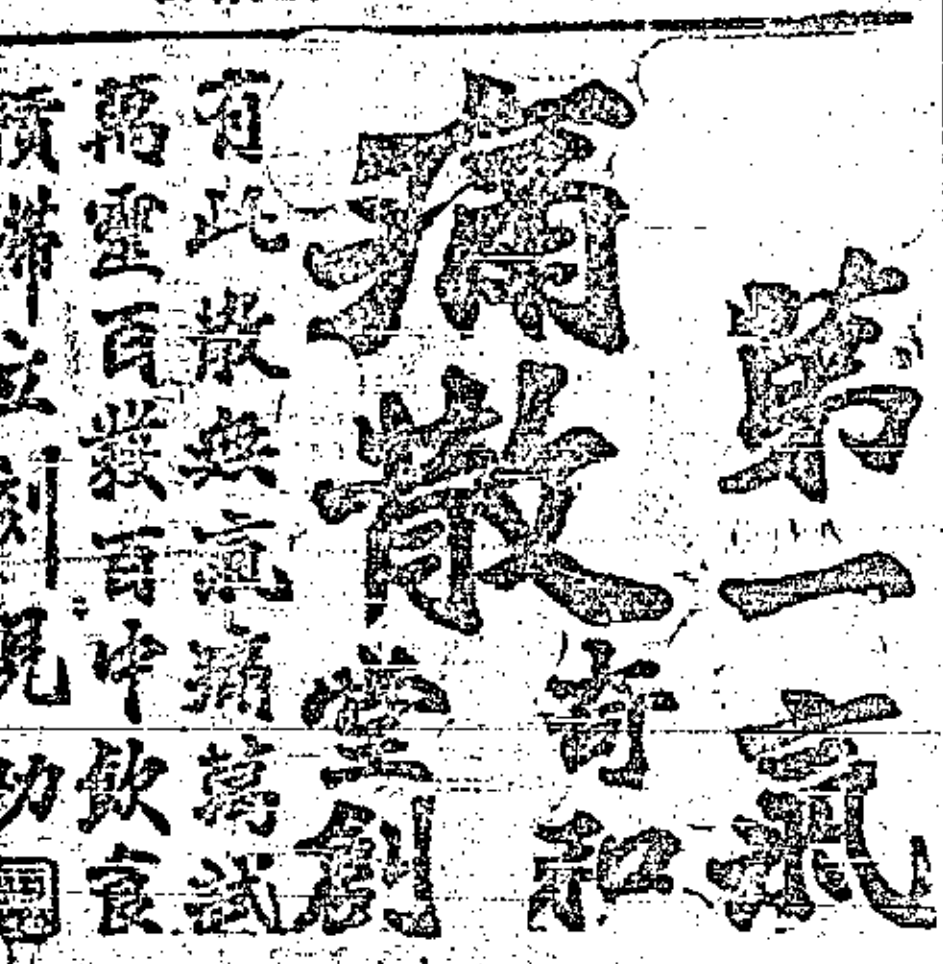 第一氣
痛散
奇和
堂創
有此散無痛萬試
萬靈百發百中飲食
積滯立刻見功